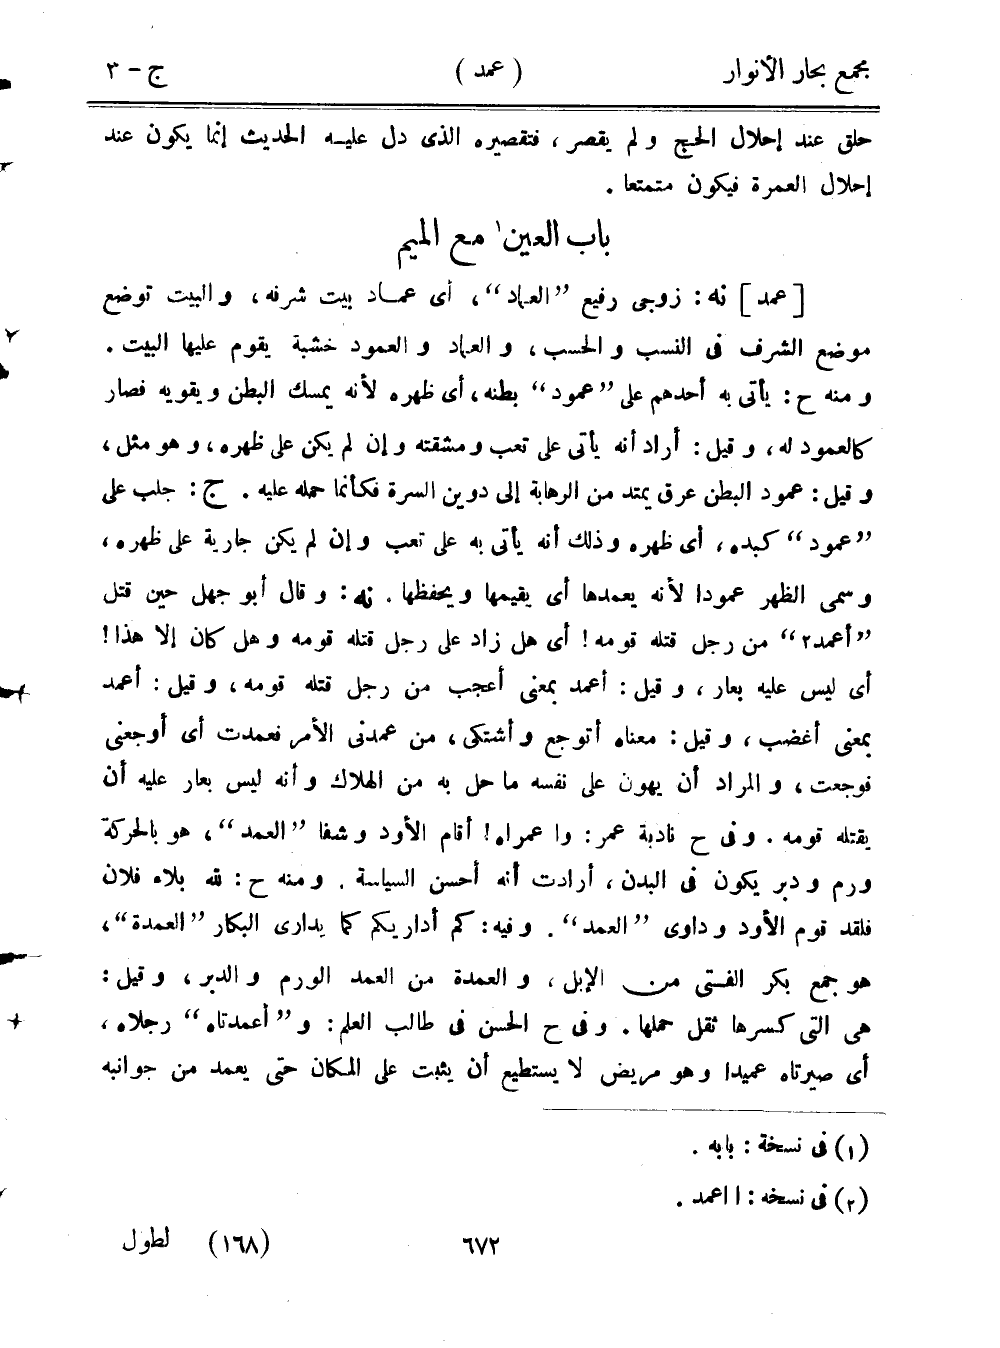 مجمع بحار الأنوار (عمد) ج - ٣
حلق عند إحلال الحج و لم يقصر، فتقصيره الذى دل عليه الحديث إنما يكون عند
إحلال العمرة فيكون متمتعا.
باب العين١ مع الميم
[عمد] نه: زوجى رفيع ”العماد“، أى عماد بيت شرفه، و البيت توضع
موضع الشرف فى النسب و الحسب، و العماد و العمود خشبة يقوم عليها البيت.
و منه ح: يأتى به أحدهم على ”عمود“ بطنه، أى ظهره لأنه يمسك البطن و يقويه فصار
كالعمود له، و قيل: أراد أنه يأتى على تعب و مشقته و إن لم يكن على ظهره، و هو مثل،
و قيل: عمود البطن عرق يمتد من الرهابة إلى دوين السرة فكأنما حمله عليه. ج: جلب على
”عمود“ كبده، أى ظهره و ذلك أنه يأتى به على تعب و إن لم يكن جارية على ظهره،
و سمى الظهر عمودا لأنه يعمدها أى يقيمها و يحفظها. نه: و قال أبو جهل حين قتل
”أعمد٢“ من رجل قتله قومه! أى هل زاد على رجل قتله قومه و هل كان إلا هذا!
أى ليس عليه بعار، و قيل: أعمد بمعنى أعجب من رجل قتله قومه، و قيل: أعمد
بمعنى أغضب، و قيل: معناه أتوجع و أشتكى، من عمدنى الأمر فعمدت أى أوجعنى
فوجعت، و المراد أن يهون على نفسه ما حل به من الهلاك و أنه ليس بعار عليه أن
يقتله قومه. و فى ح نادبة عمر: وا عمراه! أقام الأود و شفا ”العمد“، هو بالحركة
ورم و دبر يكون فى البدن، أرادت أنه أحسن السياسة. و منه ح: لله بلاء فلان
فلقد قوم الأود و داوى ”العمد“. و فيه: كم أداريكم كما يدارى البكار ”العمدة“،
هو جمع بكر الفتى من الإبل، و العمدة من العمد الورم و الدبر، و قيل:
هى التى كسرها ثقل حملها. و فى ح الحسن فى طالب العلم: و ”أعمدتاه“ رجلاه،
أى صيرتاه عميدا و هو مريض لا يستطيع أن يثبت على المكان حتى يعمد من جوانبه
(١) فى نسخة: بابه.
(٢) فى نسخه: ا اعمد.
٦٧٢ (١٦٨) لطول